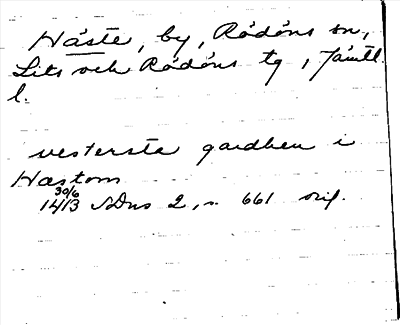 Häste, by, Rödöns sn,
Lits och Rödöns tg, Jämtl.
l.
vesterste gardhen i
Hastom
30/6
1413 SDns 2, s. 661 orig.